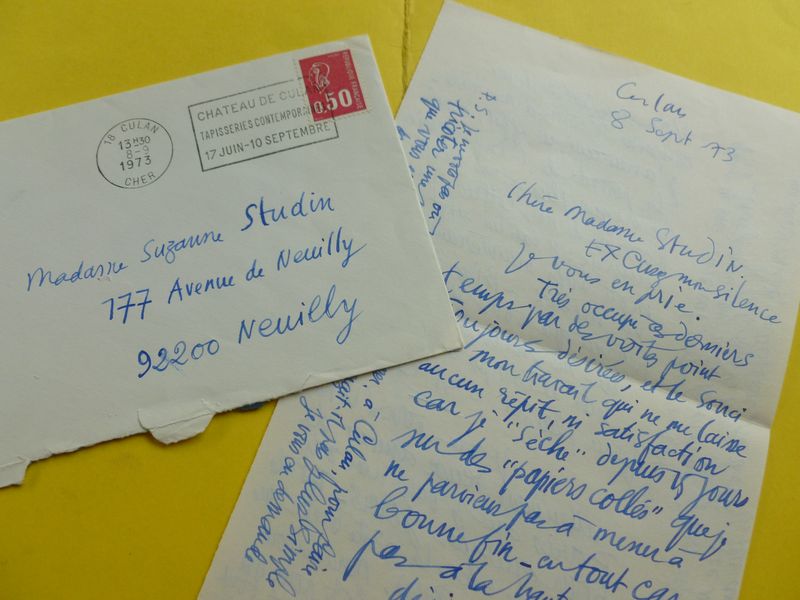 18 CULAN
13H30
8-9
1973
CHER
CHATEAU DE CULAN
TAPISSERIES CONTEMPORAINES
17 JUIN-10 SEPTEMBRE
REPUBLIQUE FRANÇAISE
0,50
Madame Suzanne Studin
177 Avenue de Neuilly
92200 Neuilly
Culan
8 Sept 73
Chère Madame Studin.
Excusez mon silence
je vous en prie.
Très occupé ces derniers
temps par des visites point
toujours désirées, et le souci
de mon travail qui ne me laisse
aucun répit, ni satisfaction
car je "sèche" depuis 15 jours
sur des "papiers collés" que je
ne parviens pas à mener à
bonne fin - en tout cas
pas à la haut
P.S.
que vous
à Culan, pour
plus simple
Je vous en demande